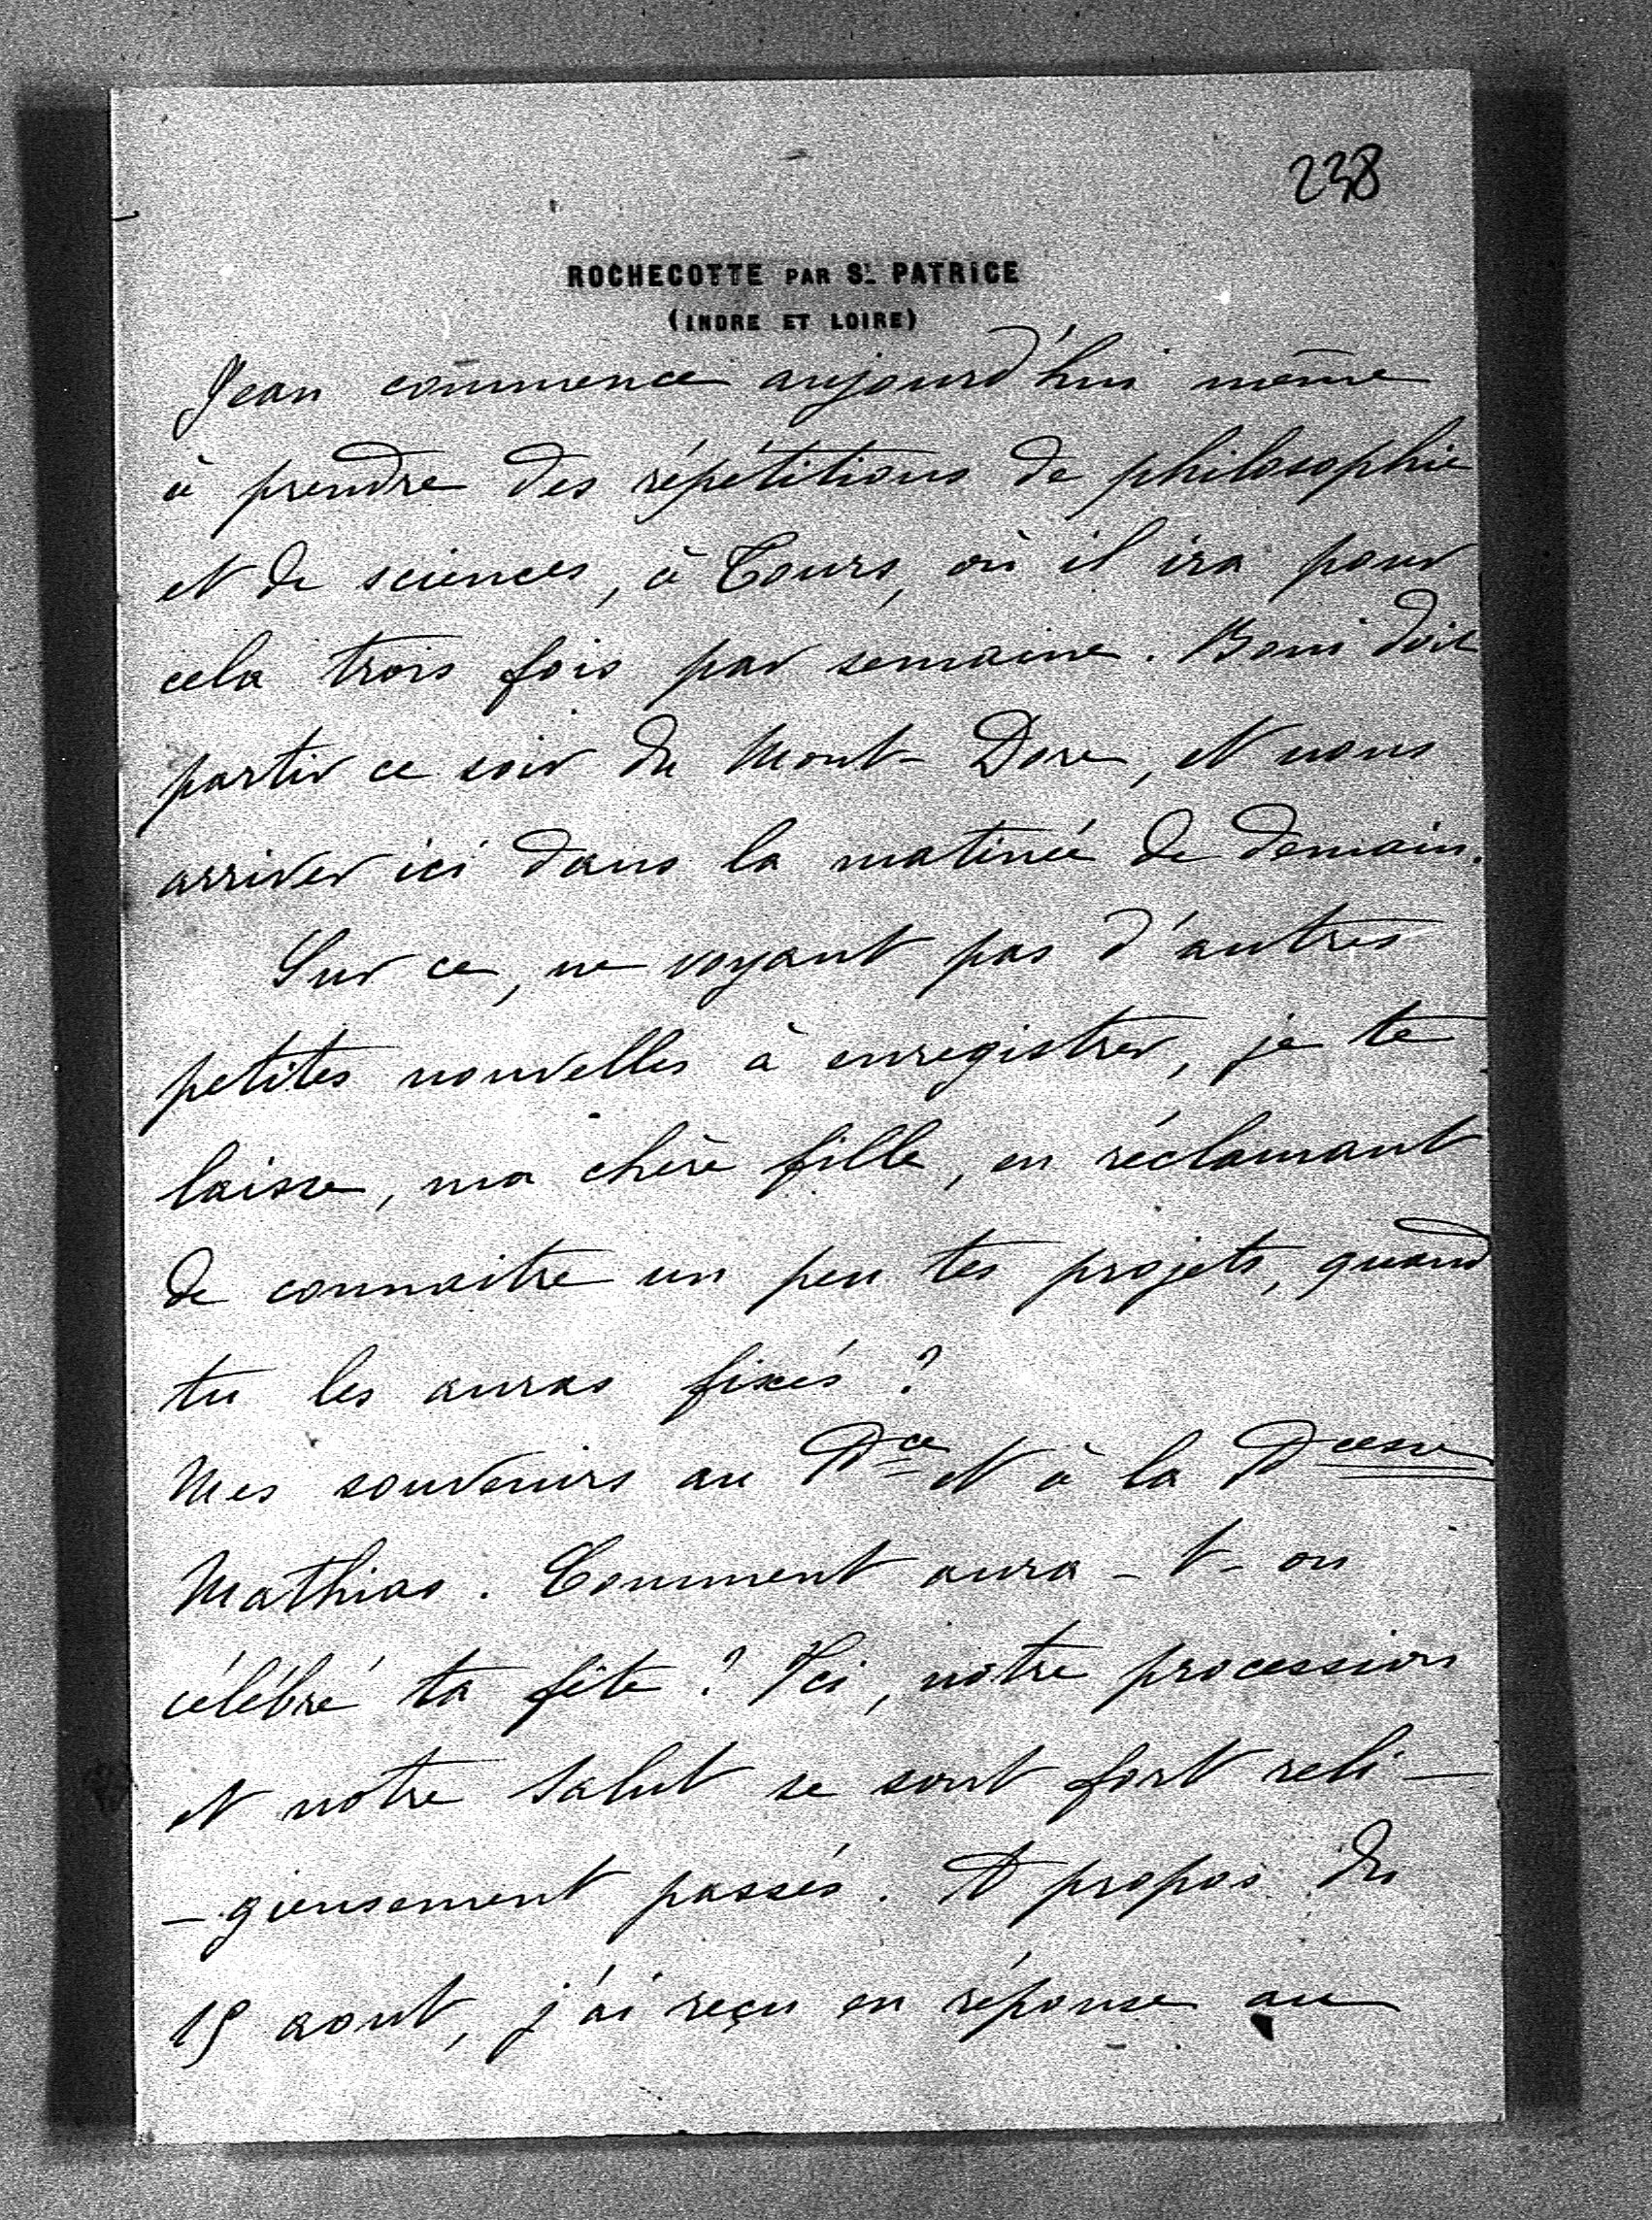 238
ROCHECOTTE PAR St. PATRICE
(INDRE ET LOIRE)
Jean commence aujourd'hui même
à prendre des répétitions de philosophie
et de sciences, à Tours, où il ira pour
cela trois fois par semaine. Boni doit
partir ce soir du Mont-Dore, et nous
arriver ici dans la matinée de demain.
Sur ce, ne voyant pas d'autres
petites nouvelles à enregistrer, je te
laisse, ma chère fille, en réclamant
de connaitre un peu tes projets, quand
tu les auras fixés?
Mes souvenirs au Pce et à la Pcesse
Mathias. Comment aura-t-on
célébré ta fête? Ici, notre procession
et notre salut se sont fort reli-
-gieusement passés. A propos du
15 aout, j'ai reçu en réponse au